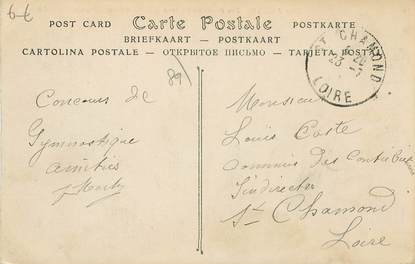 6-€
POST CARD Carte Postale POSTKARTE
BRIEFKAART — POSTKAART
CARTOLINA POSTALE — ОТКРЫТОЕ ПИСЬМО — TARJETA POST
ST CHAMOND
4 20
23 -7
LOIRE
89
Concours de
Gymnastique
amitiés
Monsieur
Louis Coste
Commis des Contributions
Indirectes
St Chamond
Loire